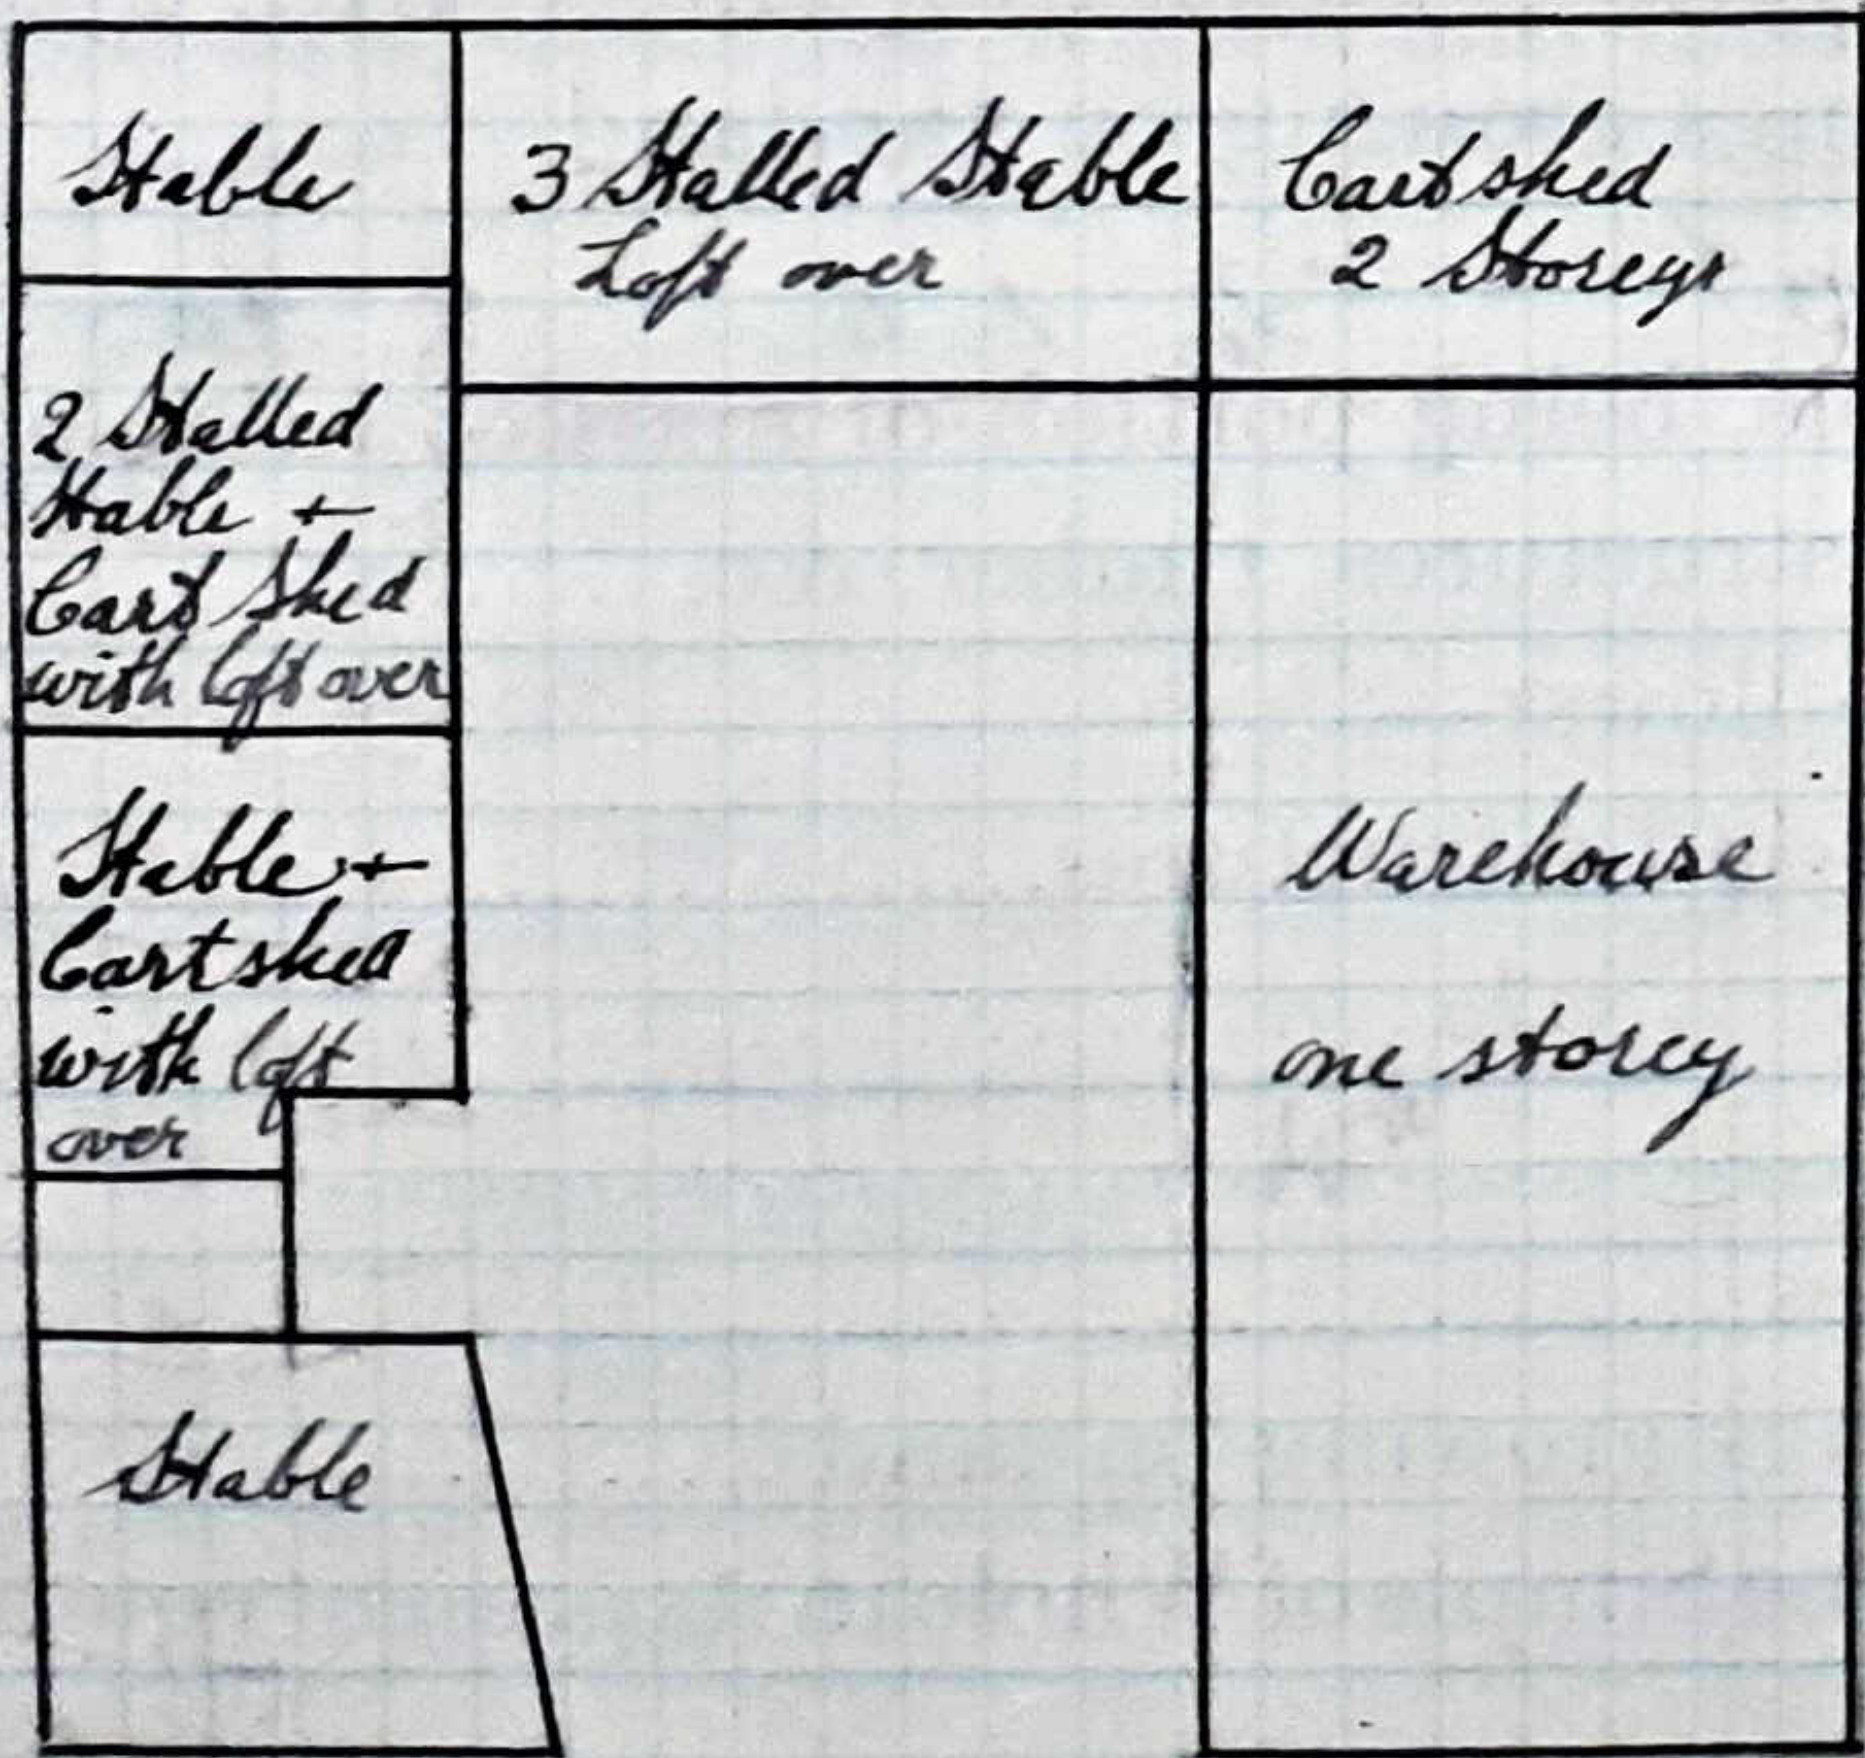 Stable
3 Stalled Stable
Loft over
Cart shed
2 Storeys
2 Stalled
Stable +
Cart Shed
with loft over
Stable +
Cart shed
with loft
over
Warehouse
one storey
Stable